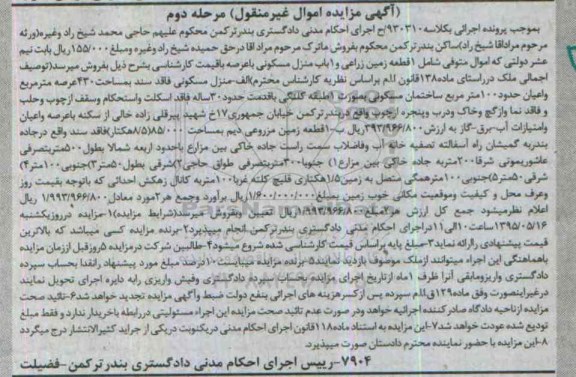 (آگهی مزایده اموال غیرمنقول) مرحله دوم
بموجب پرونده اجرائی بکلاسه ۹۳۰۳۱۰/ح اجرای احکام مدنی دادگستری بندرترکمن محکوم علیهم حاجی محمد شیخ راد وغیره(ورثه
مرحوم مراداقا شیخ راد)ساکن بندرترکمن محکوم بفروش ماترک مرحوم مراد اقا درحق حمیده شیخ راد وغیره ومبلغ ۱۵۵/۰۰۰ ریال بابت نیم
عشر دولتی که اموال متوفی شامل ۱قطعه زمین زراعی و۱باب منزل مسکونی باعرصه باقیمت کارشناسی بشرح ذیل بفروش میرسد(توصیف
اجمالی ملک درراستای ماده۱۳۸قانون ا.م براساس نظریه کارشناس محترم)الف-منزل مسکونی فاقد سند بمساحت ۴۳۰عرصه مترمربع
واعیان حدود۱۰۰متر مربع ساختمان مسکونی بصورت ۱طبقه کلنگی باقدمت حدود۳۰ساله فاقد اسکلت واستحکام وسقف ازچوب وحلب
و فاقد نما وازگچ وخاک ودرب وپنجره ازچوب واقع دربندرترکمن خیابان جمهوری۱۷خ شهید پیرقلی زاده خالی از سکنه باعرصه واعیان
وامتیازات آب-برق-گاز به ارزش ۳۹۳/۹۶۶/۸۰۰ریال ب-۱قطعه زمین مزروعی دیم بمساحت ۸۵/۰۰۰(۸/۵هکتار)فاقد سند واقع درجاده
بندربه گمیشان راه آسفالته تصفیه خانه آب وفاضلاب سمت راست جاده خاکی بین مزارع باحدود اربعه شمالا بطول ۵۰۰متربتصرفی
عاشوریموتی شرقا۲۰۰متربه جاده خاکی بین مزارع۱) جنوبا۳۰۰متربتصرفی طواق حاجی۲)شرقی بطول ۵۰متر۳)جنوبی ۱۰۰متر۴)
شرقی ۵۰متر۵)جنوبی ۱۰۰مترهمگی متصل به زمین۱/۵هکتاری فلیچ کلته غربا۱۰۰متربه کانال زهکش احداثی که باتوجه بقیمت روز
وعرف محل و کیفیت وموقعیت مکانی خوب زمین بمبلغ ۱/۶۰۰/۰۰۰/۰۰۰ریال برآورد وجمع هر۲مورد معادل ۱/۹۹۳/۹۶۶/۸۰۰ ریال
اعلام نظرمیشود جمع کل ارزش هر۲مبلغ ۱/۹۹۳/۹۶۶/۸۰۰ریال تعیین وبفروش میرسد(شرایط مزایده)۱-مزایده درروزیکشنبه
۱۳۹۵/۰۵/۱۶ ساعت ۱۰الی۱۱دراجرای احکام مدنی دادگستری بندرترکمن انجام میپذیرد۲-برنده مزایده کسی میباشد که بالاترین
قیمت پیشنهادی راارائه نماید۳-مبلغ پایه براساس قیمت کارشناسی شده شروع میشود۴-طالبین شرکت درمزایده ۵روزقبل اززمان مزایده
باهماهنگی این اجراء میتوانند ازملک موصوف بازدید نمایند۵-برنده مزایده میبایست ۱۰درصد مبلغ مورد پیشنهاد رانقدا بحساب سپرده
دادگستری واریزومابقی آنرا ظرف ۱ماه ازتاریخ اجرای مزایده بحساب سپرده دادگستری وفیش واریزی رابه دایره اجرای تحویل نمایند
درغیراینصورت وفق ماده۱۲۹ق.ا.م سپرده پس ازکسرهزینه های اجرائی بنفع دولت ضبط وآگهی مزایده تجدید خواهد شد۶-تائید صحت
مزایده ازناحیه دادگاه صادر کننده اجرائیه خواهد ودر صورت عدم تائید صحت مزایده این اجراء مسئولیتی دررابطه باخریدار ندارد و فقط مبلغ
تودیع شده عودت خواهد شد۷-این مزایده به استناد ماده۱۱۸قانون اجرای احکام مدنی دریکنوبت دریکی از جراید کثیرالانتشار درج میگردد
۸-این مزایده با حضور نماینده محترم دادستان صورت میپذیرد.
۷۹۰۴-رییس اجرای احکام مدنی دادگستری بندرترکمن-فضیلت